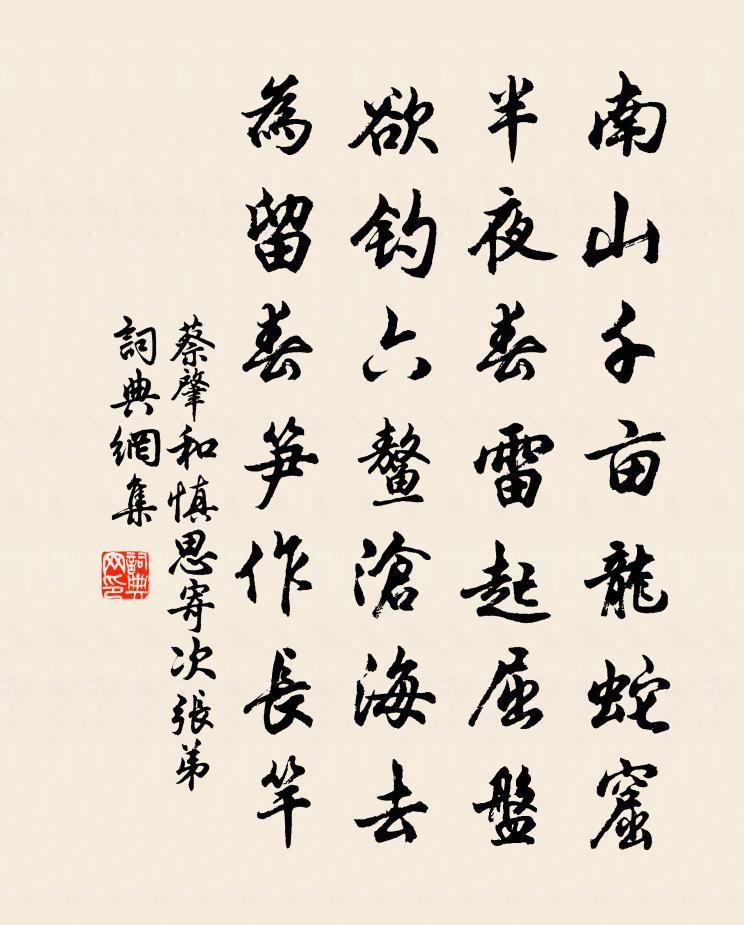 南山千亩龍蛇窟
半夜春雷起屈盤
欲釣六鼇滄海去
為留春笋作長竿
蔡肇和慎思寄次張弟
詞典網集
詞典网印